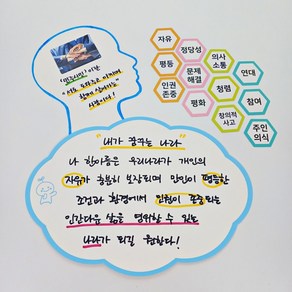 "민주시민"이란
"서로 도와주고 아끼며
함께 살아가는
사람이다!
자유
정당성
의사
소통
평등
문제
해결
연대
인권
존중
청렴
평화
참여
창의적
사고
주인
의식
"내가 꿈꾸는 나라"
나 한아름은 우리나라가 개인의
자유가 충분히 보장되며 만인이 평등한
조건과 환경에서 인권이 존중되는
인간다운 삶을 영위할 수 있는
나라가 되길 원한다!